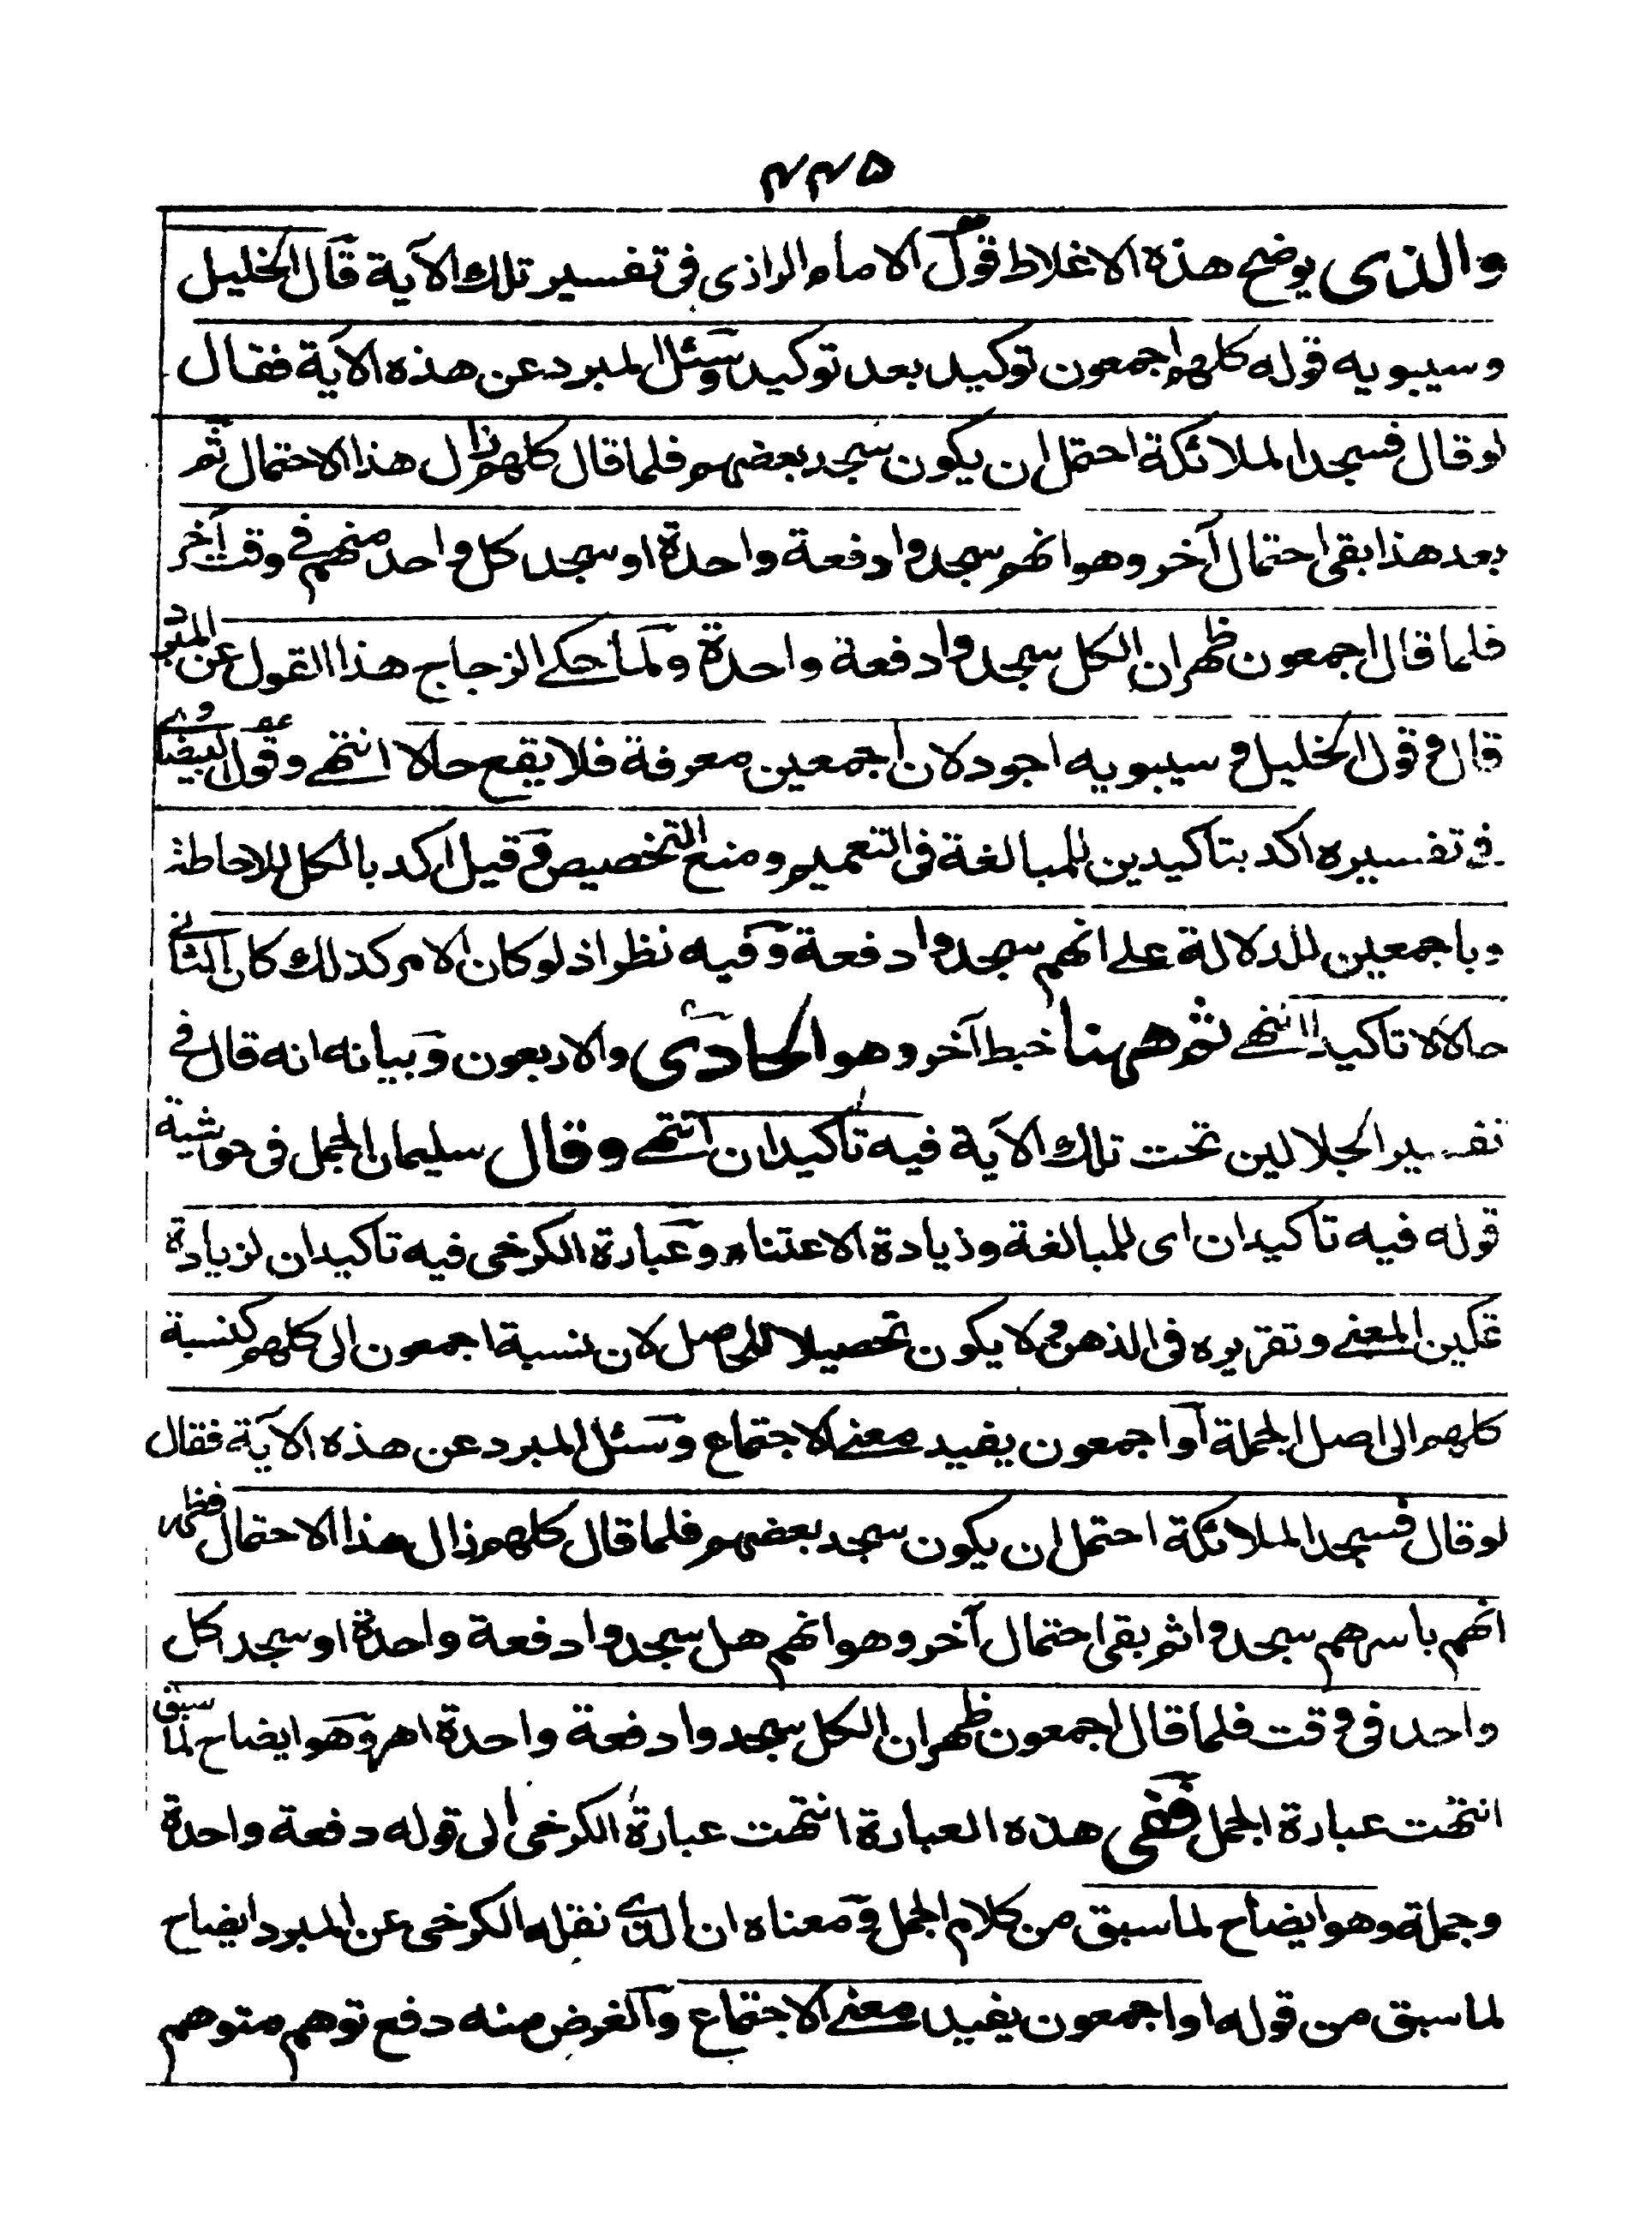 ۲۲۵
والذى يوضح هذه الاغلاط قول الامام الرازى فى تفسير تلك الآية قال الخليل
وسيبويه قوله كلهم اجمعون توكيد بعد توكيد وسئل المبرد عن هذه الآية فقال
لو قال فسجد الملائكة احتمل ان يكون سجد بعضهم فلما قال كلهم زال هذا الاحتمال ثم
بعد هذا بقى احتمال آخر وهو انهم سجدوا دفعة واحدة او سجد كل واحد منهم فى وقت آخر
فلما قال اجمعون ظهر ان الكل سجدوا دفعة واحدة ولما حكى الزجاج هذا القول عن المبرد
قال وقول الخليل وسيبويه اجود لان اجمعين معرفة فلا يقع حالا انتهى وقول البيضاوى
فى تفسيره اكد بتاكيدين للمبالغة فى التعميم ومنع التخصيص وقيل اكد بالكل للاحاطة
وباجمعين للدلالة على انهم سجدوا دفعة وفيه نظر اذ لو كان الامر كذلك كان الثانى
حالا لا تاكيدا انتهى ثم ههنا خبط آخر وهو الحادى والاربعون وبيانه انه قال فى
تفسير الجلالين تحت تلك الآية فيه تاكيدان انتهى وقال سليمان الجمل فى حواشيه
قوله فيه تاكيدان اى للمبالغة وزيادة الاعتناء وعبارة الكرخى فيه تاكيدان لزيادة
تمكين المعنى وتقريره فى الذهن ولا يكون تحصيلا للحاصل لان نسبة اجمعون الى كلهم كنسبة
كلهم الى اصل الجملة او اجمعون يفيد معنى الاجتماع وسئل المبرد عن هذه الآية فقال
لو قال فسجد الملائكة احتمل ان يكون سجد بعضهم فلما قال كلهم زال هذا الاحتمال فظهر
انهم باسرهم سجدوا ثم بقى احتمال آخر وهو انهم هل سجدوا دفعة واحدة او سجد كل
واحد فى وقت فلما قال اجمعون ظهر ان الكل سجدوا دفعة واحدة اهـ وهو ايضاح لما سبق
انتهت عبارة الجمل ففى هذه العبارة انتهت عبارة الكرخى الى قوله دفعة واحدة
وجملة وهو ايضاح لما سبق من كلام الجمل ومعناه ان الذى نقله الكرخى عن المبرد ايضاح
لما سبق من قوله او اجمعون يفيد معنى الاجتماع والغرض منه دفع توهم متوهم